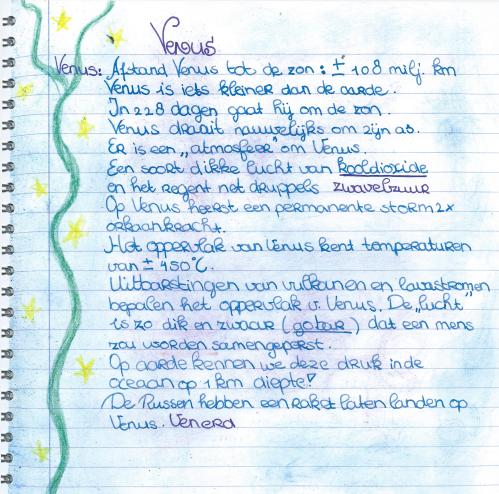 Venus
Venus: Afstand Venus tot de zon: ± 108 milj. km
Venus is iets kleiner dan de aarde.
In 228 dagen gaat hij om de zon.
Venus draait nauwelijks om zijn as.
Er is een „atmosfeer" om Venus.
Een soort dikke lucht van kooldioxide
en het regent net druppels zwavelzuur
Op Venus heerst een permanente storm 2x
orkaankracht.
Het oppervlak van Venus kent temperaturen
van ± 450°C.
Uitbarstingen van vulkanen en lavastromen
bepalen het oppervlak v. Venus. De „lucht"
is zo dik en zwaar (gobar) dat een mens
zou worden samengeperst.
Op aarde kennen we deze druk in de
oceaan op 1 km diepte!
De Russen hebben een raket laten landen op
Venus. Venera